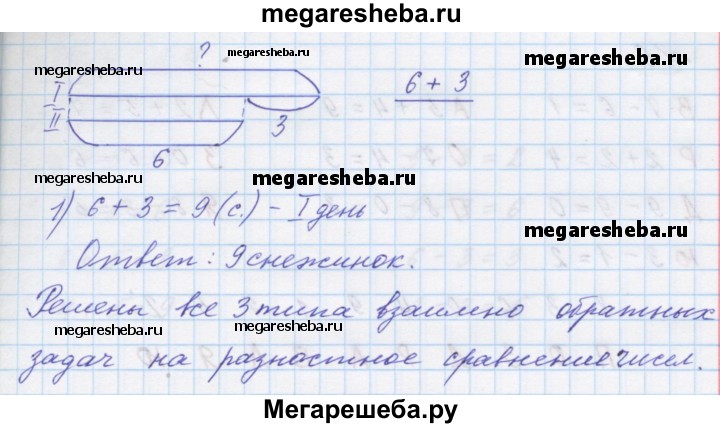 megaresheba.ru
?
megaresheba.ru
megaresheba.ru
megaresheba.ru
I
6 + 3
II
3
6
megaresheba.ru
1) 6 + 3 = 9 (с.) - I день
megaresheba.ru
Ответ: 9 снежинок.
Решены все 3 типа взаимно обратных
megaresheba.ru
megaresheba.ru
megaresheba.ru
задач на разностное сравнение чисел.
Мегарешеба.ру